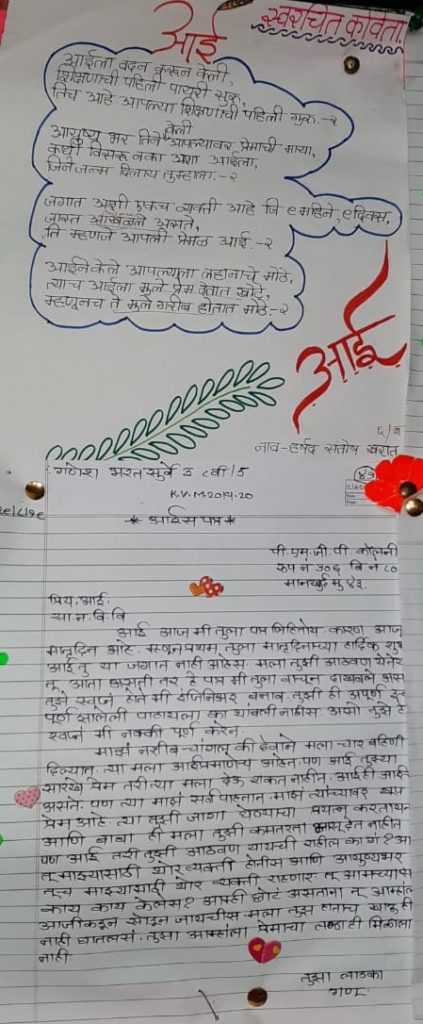 आई
स्वरचित कविता
आईला वंदन करून केली,
शिक्षणाची पहिली पायरी सुरू,
तिच आहे आपल्या शिक्षणाची पहिली गुरू.-२
आयुष्य भर तिने केली आपल्यावर प्रेमाची माया,
कधी विसरू नका अशा आईला,
जिने जन्म दिलाय तुम्हाला.-२
जगात अशी एकच व्यक्ती आहे जि ९ महिने, ९ दिवस,
जास्त ओखळले असते,
ति म्हणजे आपली प्रेमळ आई.-२
आईने केले आपल्याला लहानाचे मोठे,
त्याच आईला मुले प्रेम देतात खोटे,
म्हणूनच ते मुले गरीब होतात मोठे.-२
आई
नाव-हर्षद संतोष खरात
गणेश भरत सुर्वे इ ८वी/5
K.V.M-2019-20
* आईस पत्र *
पी. एम. जी. पी. कॉलनी
रूम नं ३०६ बि नं ८०
मानखुर्द मुंबई.
प्रिय. आई.
सा. न. वि. वि
आई आज मी तुला पत्र लिहितोय. कारण आज
मातृदिन आहे. म्हणून प्रथम तुला मातृदिनाच्या हार्दिक शुभ
आई तु या जगात नाही आहेस. मला तुझी आठवण येतेर
तू आता असती तर हे पत्र मी तुला वाचून दाखवले अस
तुझे स्वप्न होते मी इंजिनिअर बनाव. तुझी ही अपूर्ण इ
पूर्ण झालेली पाहायला का थांबली नाहीस. असो तुझे हे
स्वप्नं मी नक्की पूर्ण करेन.
माझं नशीब चांगलू की देवाने मला चार बहिणी
दिल्यात. त्या मला आईप्रमाणेच आहेत. पण आई तुझ्या
सारखे प्रेम तरी त्या मला देऊ शकत नाहीत. आई ही आई
असते. पण त्या माझं सर्व पाहतात. माझं त्यांच्यावर खूप
प्रेम आहे. त्या तुझी जागा घेण्याचा प्रयत्न करतायत
आणि बाबा ही मला तुझी कमतरता भासू देत नाहीत
पण आई तरी तुझी आठवण यायची राहील का गं? आ
तू माझ्यासाठी थोर व्यक्ती होतीस आणि आयुष्यभर
तूच माझ्यासाठी थोर व्यक्ती राहणार. तू आमच्यास
काय काय केलेस? आम्ही छोटं असताना तू आम्हाल
आजीकडून सोडून जायचीस मला तुझं हातचं खाऊ ही
नाही घातलसं. तुझा आम्हांला प्रेमाचा लळा ही मिळाला
नाही.
तुझा लाडका
गणू.